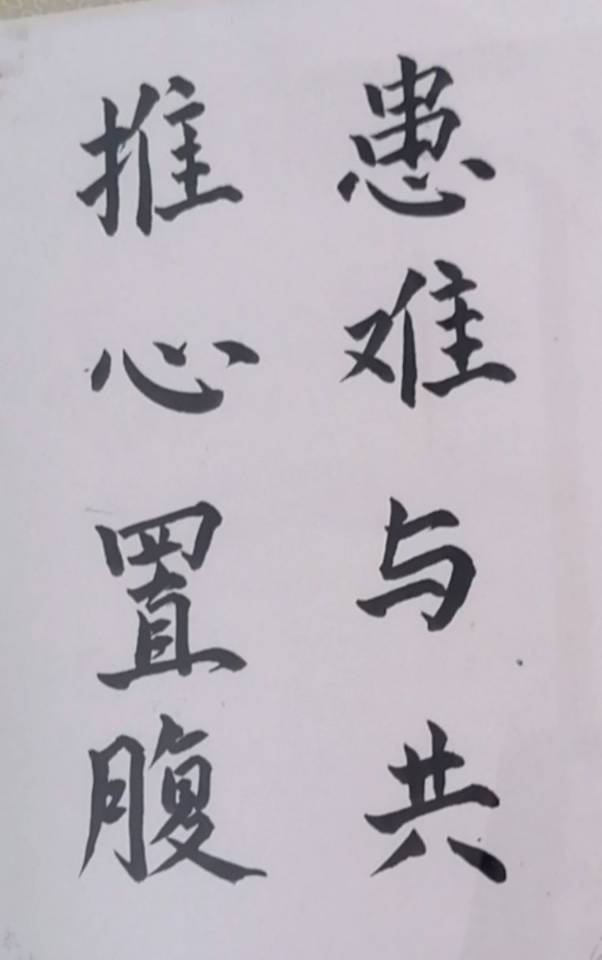 患难与共
推心置腹